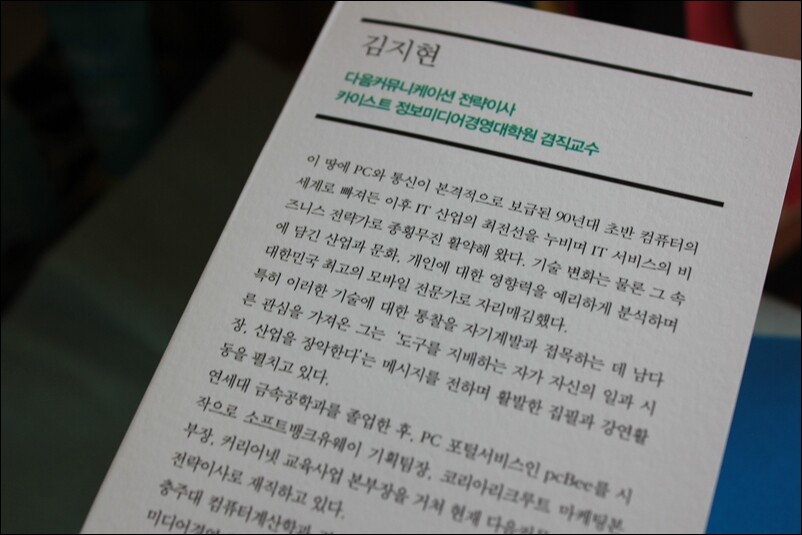 김지현
다음커뮤니케이션 전략이사
카이스트 정보미디어경영대학원 겸직교수
이 땅에 PC와 통신이 본격적으로 보급된 90년대 초반 컴퓨터의
세계로 빠져든 이후 IT 산업의 최전선을 누비며 IT 서비스의 비
즈니스 전략가로 종횡무진 활약해 왔다. 기술 변화는 물론 그 속
에 담긴 산업과 문화, 개인에 대한 영향력을 예리하게 분석하며
대한민국 최고의 모바일 전문가로 자리매김했다.
특히 이러한 기술에 대한 통찰을 자기계발과 접목하는 데 남다
른 관심을 가져온 그는 ‘도구를 지배하는 자가 자신의 일과 시
장, 산업을 장악한다’는 메시지를 전하며 활발한 집필과 강연활
동을 펼치고 있다.
연세대 금속공학과를 졸업한 후, PC 포털서비스인 pcBee를 시
작으로 소프트뱅크유웨이 기획팀장, 코리아리크루트 마케팅본
부장, 커리어넷 교육사업 본부장을 거쳐 현재
전략이사로 재직하고 있다.
충주대 컴퓨터계산학과